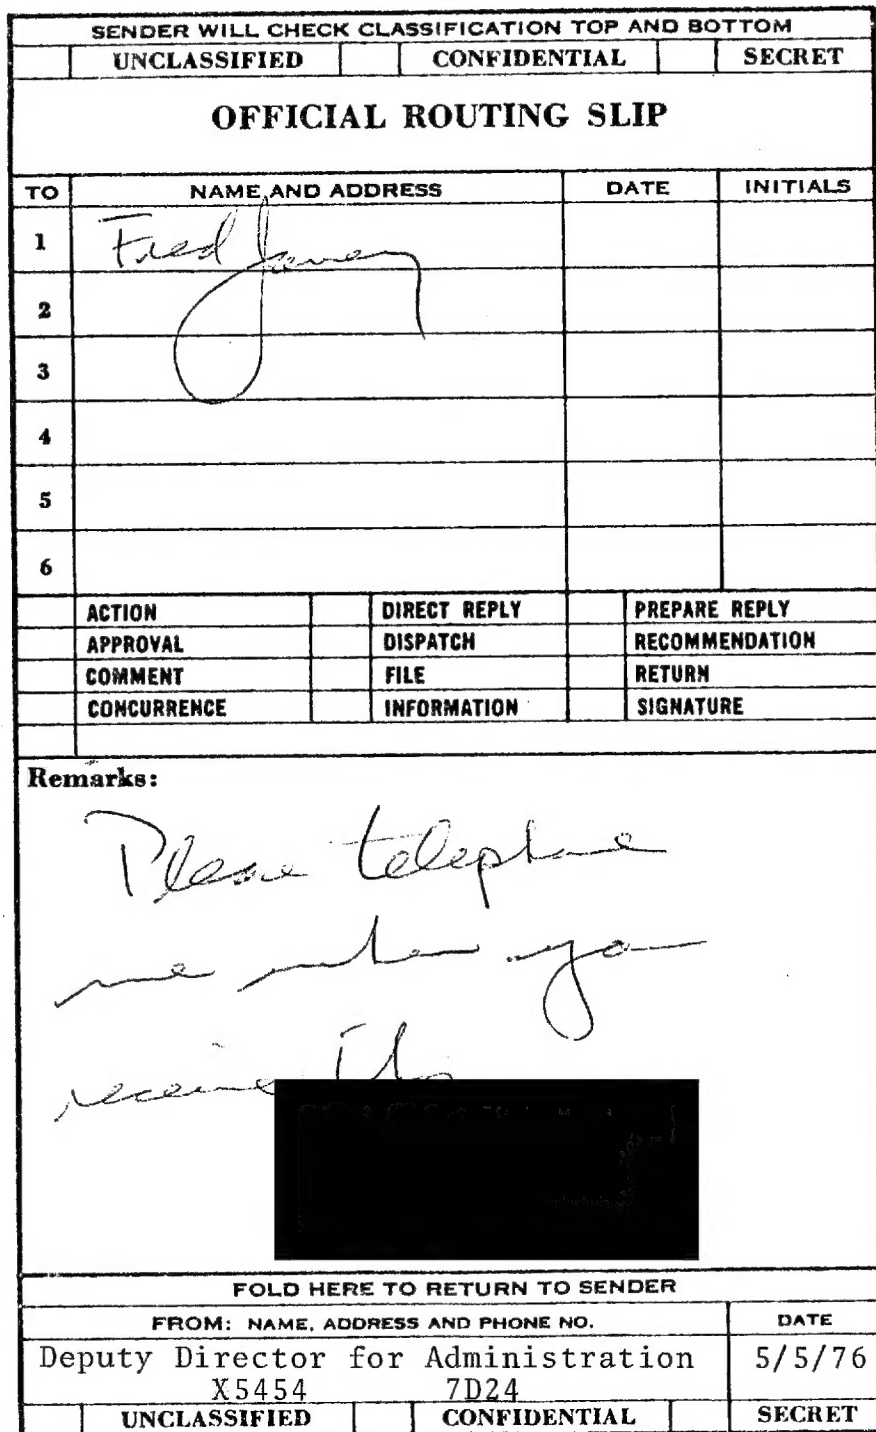 SENDER WILL CHECK CLASSIFICATION TOP AND BOTTOM
UNCLASSIFIED CONFIDENTIAL SECRET
OFFICIAL ROUTING SLIP
TO NAME AND ADDRESS DATE INITIALS
1 Fred
2
3
4
5
6
ACTION DIRECT REPLY PREPARE REPLY
APPROVAL DISPATCH RECOMMENDATION
COMMENT FILE RETURN
CONCURRENCE INFORMATION SIGNATURE
Remarks:
Please telephone
me when you
receive this
FOLD HERE TO RETURN TO SENDER
FROM: NAME, ADDRESS AND PHONE NO. DATE
Deputy Director for Administration 5/5/76
X5454 7D24
UNCLASSIFIED CONFIDENTIAL SECRET